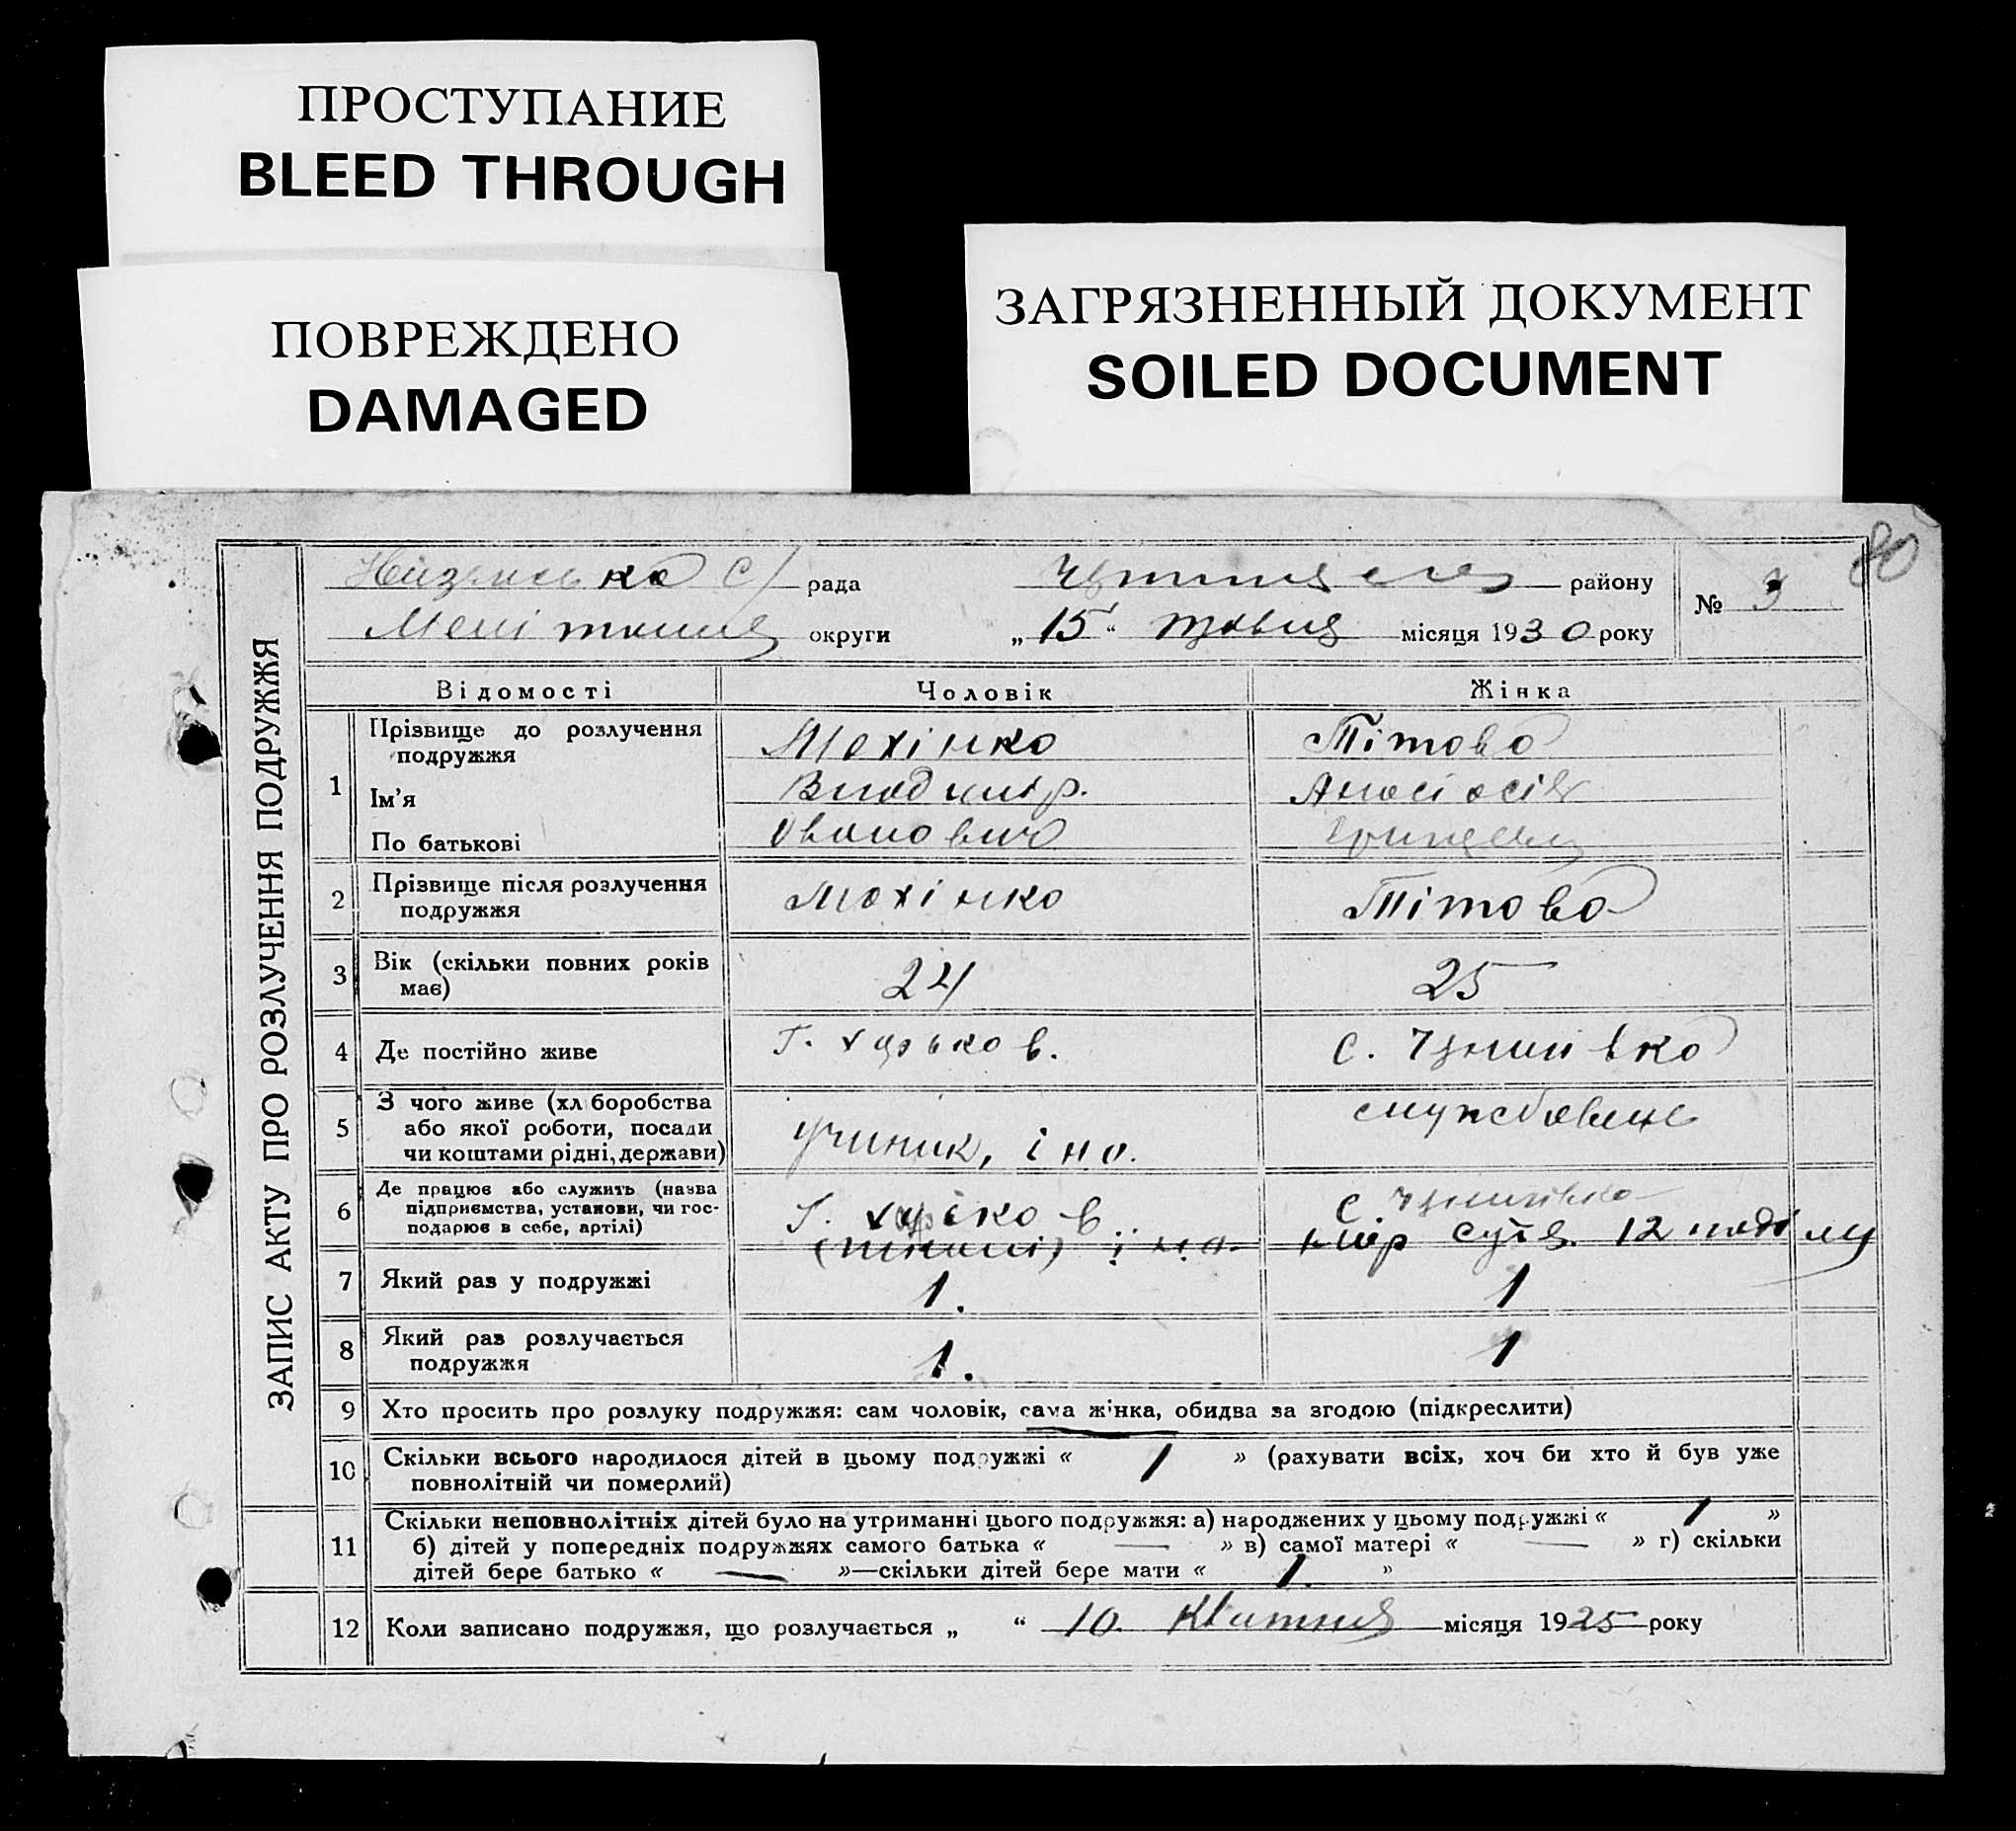 ПРОСТУПАНИЕ
BLEED THROUGH
ПОВРЕЖДЕНО
DAMAGED
ЗАГРЯЗНЕННЫЙ ДОКУМЕНТ
SOILED DOCUMENT
80
ЗАПИС АКТУ ПРО РОЗЛУЧЕННЯ ПОДРУЖЖЯ
рада району
№ 3
округи „ 15 “ місяця 1930 року
Відомості Чоловік Жінка
1 Прізвище до розлучення
подружжя Махінко Тітова
Ім'я Владимір.
По батькові Іванович
2 Прізвище після розлучення
подружжя Махінко Тітова
3 Вік (скільки повних років
має) 24 25
4 Де постійно живе Г. Харьков. С.
5 З чого живе (хліборобства
або якої роботи, посади
чи коштами рідні, держави) учиник, службовец
6 Де працює або служить (назва
підприємства, установи, чи гос-
подарює в себе, артілі) Г. С.
12
7 Який раз у подружжі 1. 1
8 Який раз розлучається
подружжя 1. 1
9 Хто просить про розлуку подружжя: сам чоловік, сама жінка, обидва за згодою (підкреслити)
10 Скільки всього народилося дітей в цьому подружжі « 1 » (рахувати всіх, хоч би хто й був уже
повнолітній чи померлий)
11 Скільки неповнолітніх дітей було на утриманні цього подружжя: а) народжених у цьому подружжі « 1 »
б) дітей у попередніх подружжях самого батька « — » в) самої матері « — » г) скільки
дітей бере батько « — »—скільки дітей бере мати « 1. »
12 Коли записано подружжя, що розлучається „ “ 10. Квітня місяця 1925 року